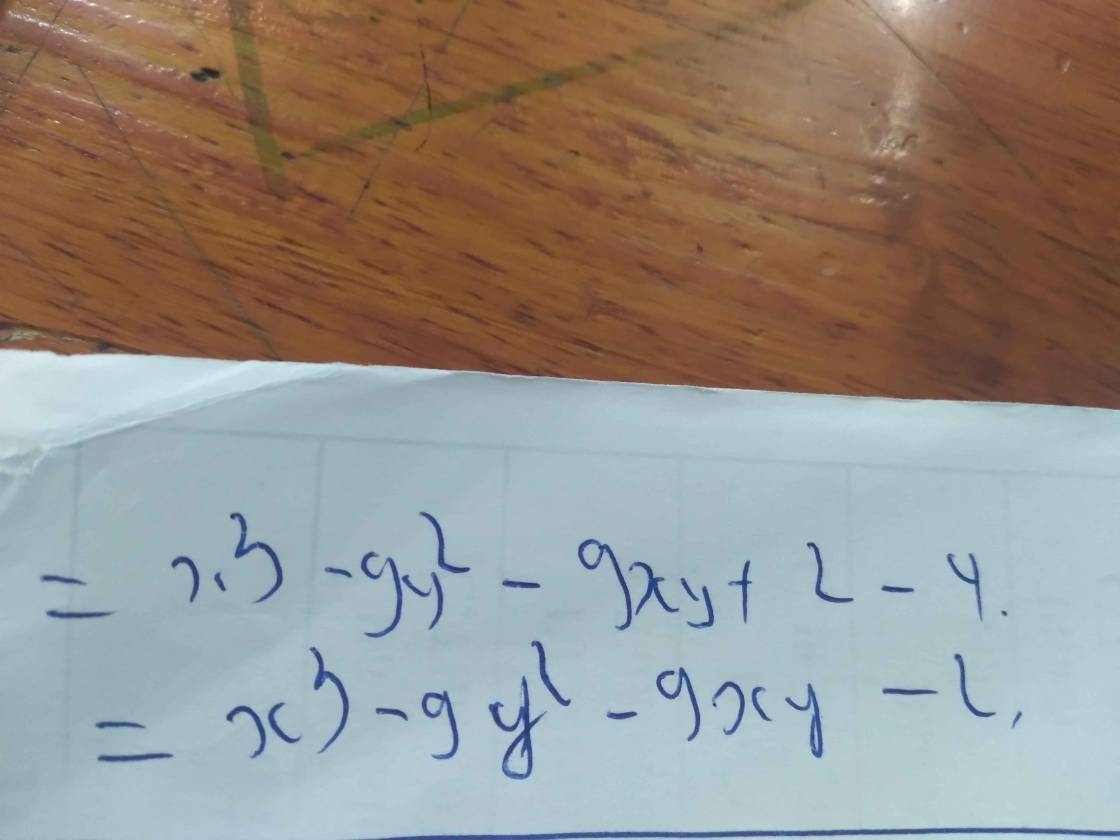 = x³ - 9y² - 9xy + 2 - 4.
= x³ - 9y² - 9xy - 2,